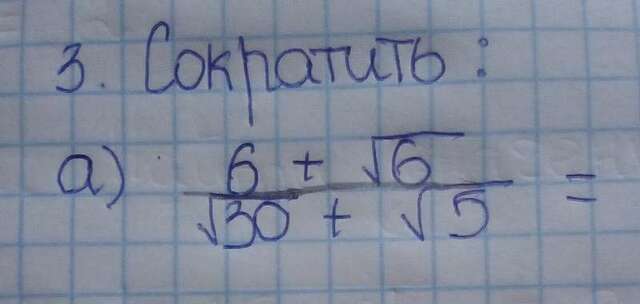 3. Сократить:
а) (6 + √6) / (√30 + √5) =